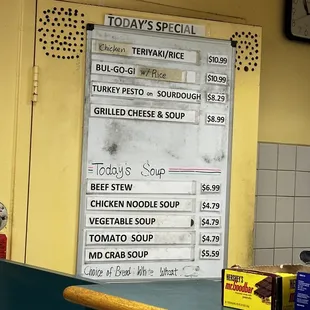 TODAY'S SPECIAL
Chicken TERIYAKI/RICE $10.99
BUL-GO-GI w/ Rice $10.99
TURKEY PESTO on SOURDOUGH $8.29
GRILLED CHEESE & SOUP $8.99
Today's Soup
BEEF STEW $6.99
CHICKEN NOODLE SOUP $4.79
VEGETABLE SOUP $4.79
TOMATO SOUP $4.79
MD CRAB SOUP $5.59
Choice of Bread White Wheat
HERSHEY'S